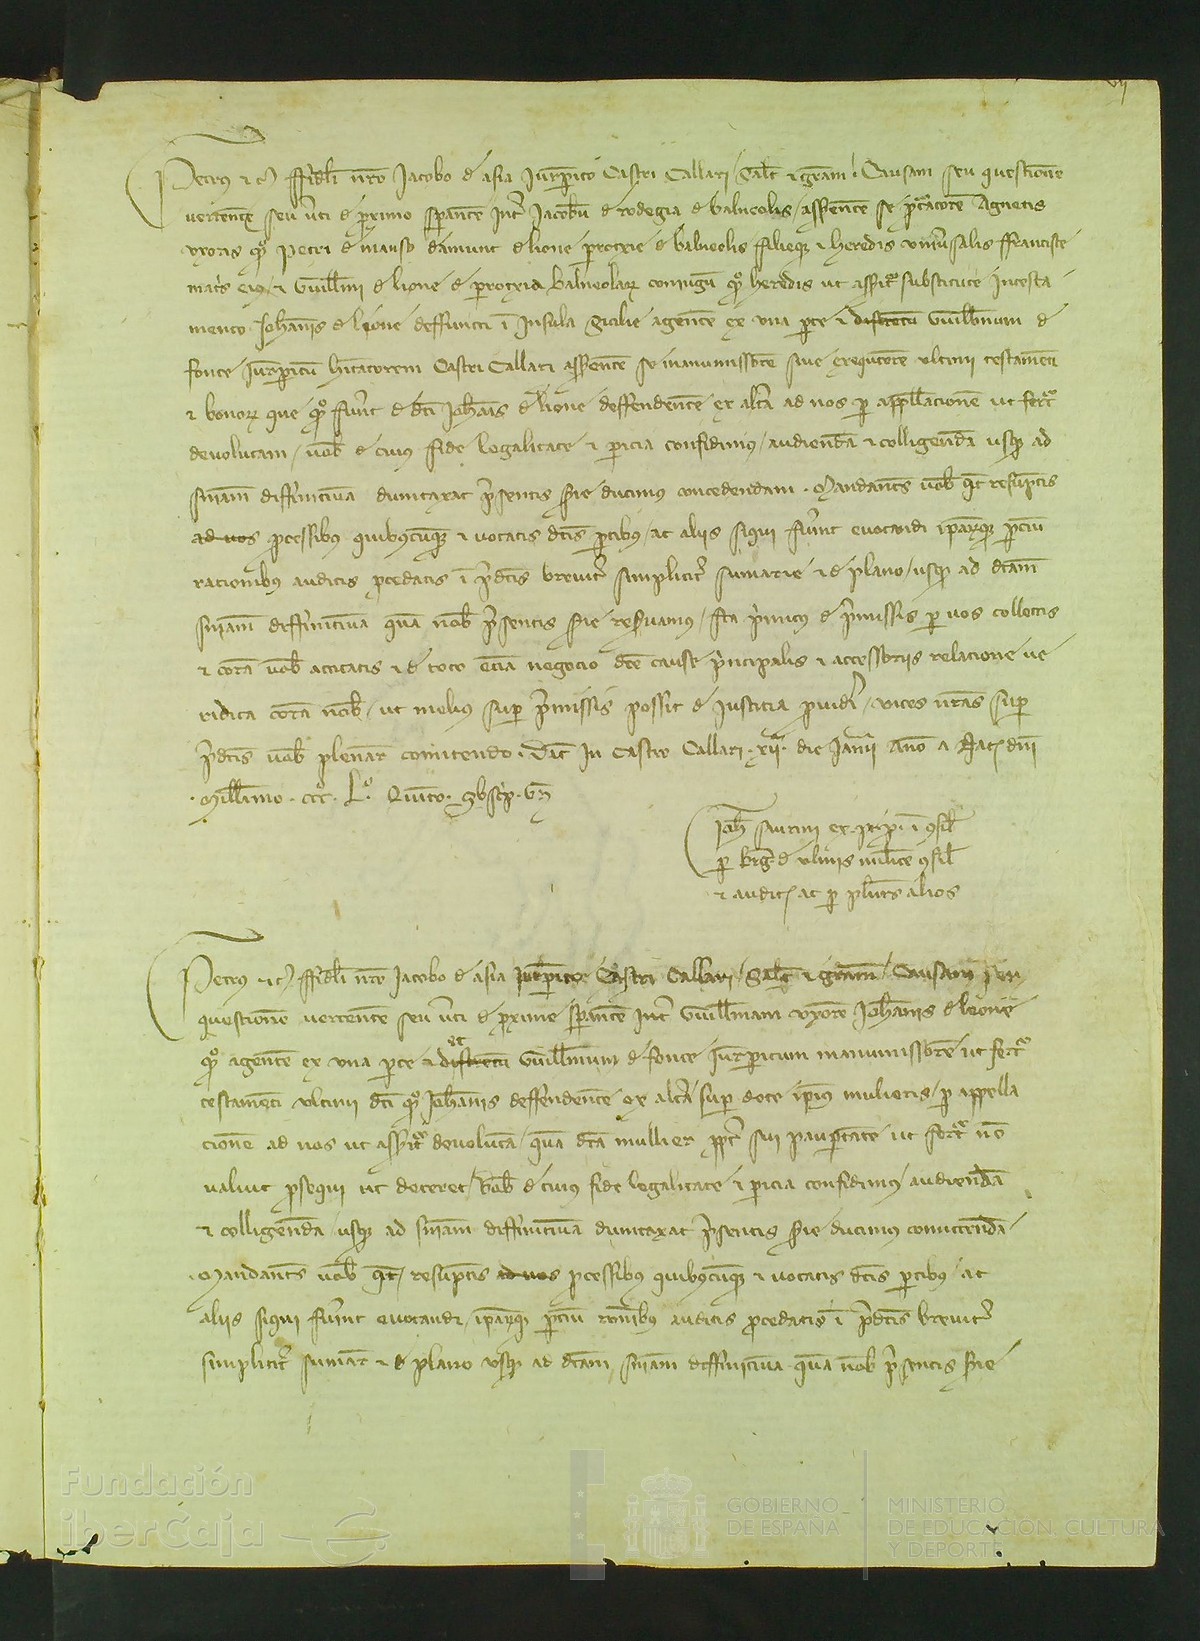 vij
Petrus etc. ffideli nostro Jacobo de asia Jurisperito Castri Callari Salutem et gratiam. Causam seu questionem
vertentem seu verti de proximo sperantem inter Jacobum de rodegia de balneolis asserentem se procuratorem Agnetis
uxoris quondam Petri de manso damunt de lione parrochie de balneolis filieque et heredis universalis ffrancisce
matris eius et Guillelmi de lione de parrochia balneolarum coniugum quondam heredis ut asseritur substitute in testa
mento Johannis de leone deffuncti in Insula Sicilie agentem ex una parte et Guillelmum de
fonte Jurisperitum habitatorem Castri Callari asserentem se manumissorem sive exequtorem ultimi testamenti
et bonorum que quondam fuerunt de dicti Johannis de lione deffendentem ex altera ad nos per appellacionem ut fertur
devolutam vobis de cuius fide legalitate et pericia confidimus audiendam et colligendam usque ad
sentenciam diffinitivam dumtaxat presentis serie ducimus concedendam. Mandantes vobis quatenus resumptis
ad nos processibus quibuscumque et vocatis dictis partibus ac aliis siqui fuerint evocandi ipsarumque parcium
racionibus auditis procedatis in predictis breviter simpliciter sumarie et de plano usque ad dictam
sentenciam diffinitivam quam nobis presentis serie reservamus facta primitus de premissis per vos collectis
et coram vobis actitatis et de toto eciam negocio dicte cause principalis et accessoriis relacione ve
ridica coram nobis ut melius super premissis possit de iusticia provideri vices nostras super
predictis vobis plenarie comitendo. Datum in Castro Callari xii die Januarii Anno a Nativitate domini
Millesimo CCC L Quinto. Subscripsit. Gn
Johannes
per de ulmis militem consiliarium
et auditorem ac per plures alios
Petrus etc. ffideli nostro Jacobo de asia Jurisperito Castri Callari Salutem et gratiam. Causam seu
questionem vertentem seu verti de proximo sperantem inter Guillelmam uxorem Johannis de leone
quondam agentem ex una parte et Guillelmum de fonte Jurisperitum manumissorem ut fertur
testamenti ultimi dicti quondam Johannis deffendentem ex altera super dote ipsius mulieris per appella
cionem ad nos ut asseritur devolutam quam dicta mulier propter sui paupertatem ut fertur non
valuit prosequi ut deceret vobis de cuius fide legalitate et pericia confidimus audiendam
et colligendam usque ad sentenciam diffinitivam dumtaxat presentis serie ducimus comittendam
Mandantes vobis quatenus resumptis ad nos processibus quibuscumque et vocatis dictis partibus ac
aliis siqui fuerint evocandi ipsarumque parcium racionibus auditis procedatis in predictis breviter
simpliciter sumarie et de plano usque ad dictam sentenciam diffinitivam quam nobis presentis serie
Fundación
iberCaja
GOBIERNO
DE ESPAÑA
MINISTERIO
DE EDUCACIÓN, CULTURA
Y DEPORTE